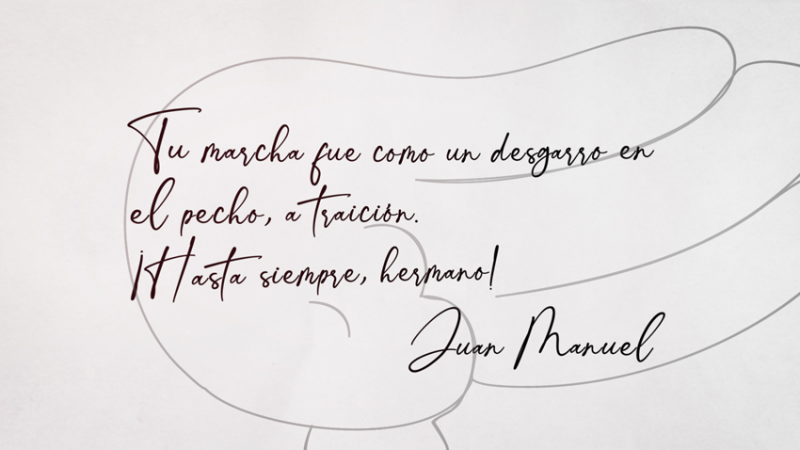 Tu marcha fue como un desgarro en
el pecho, a traición.
¡Hasta siempre, hermano!
Juan Manuel